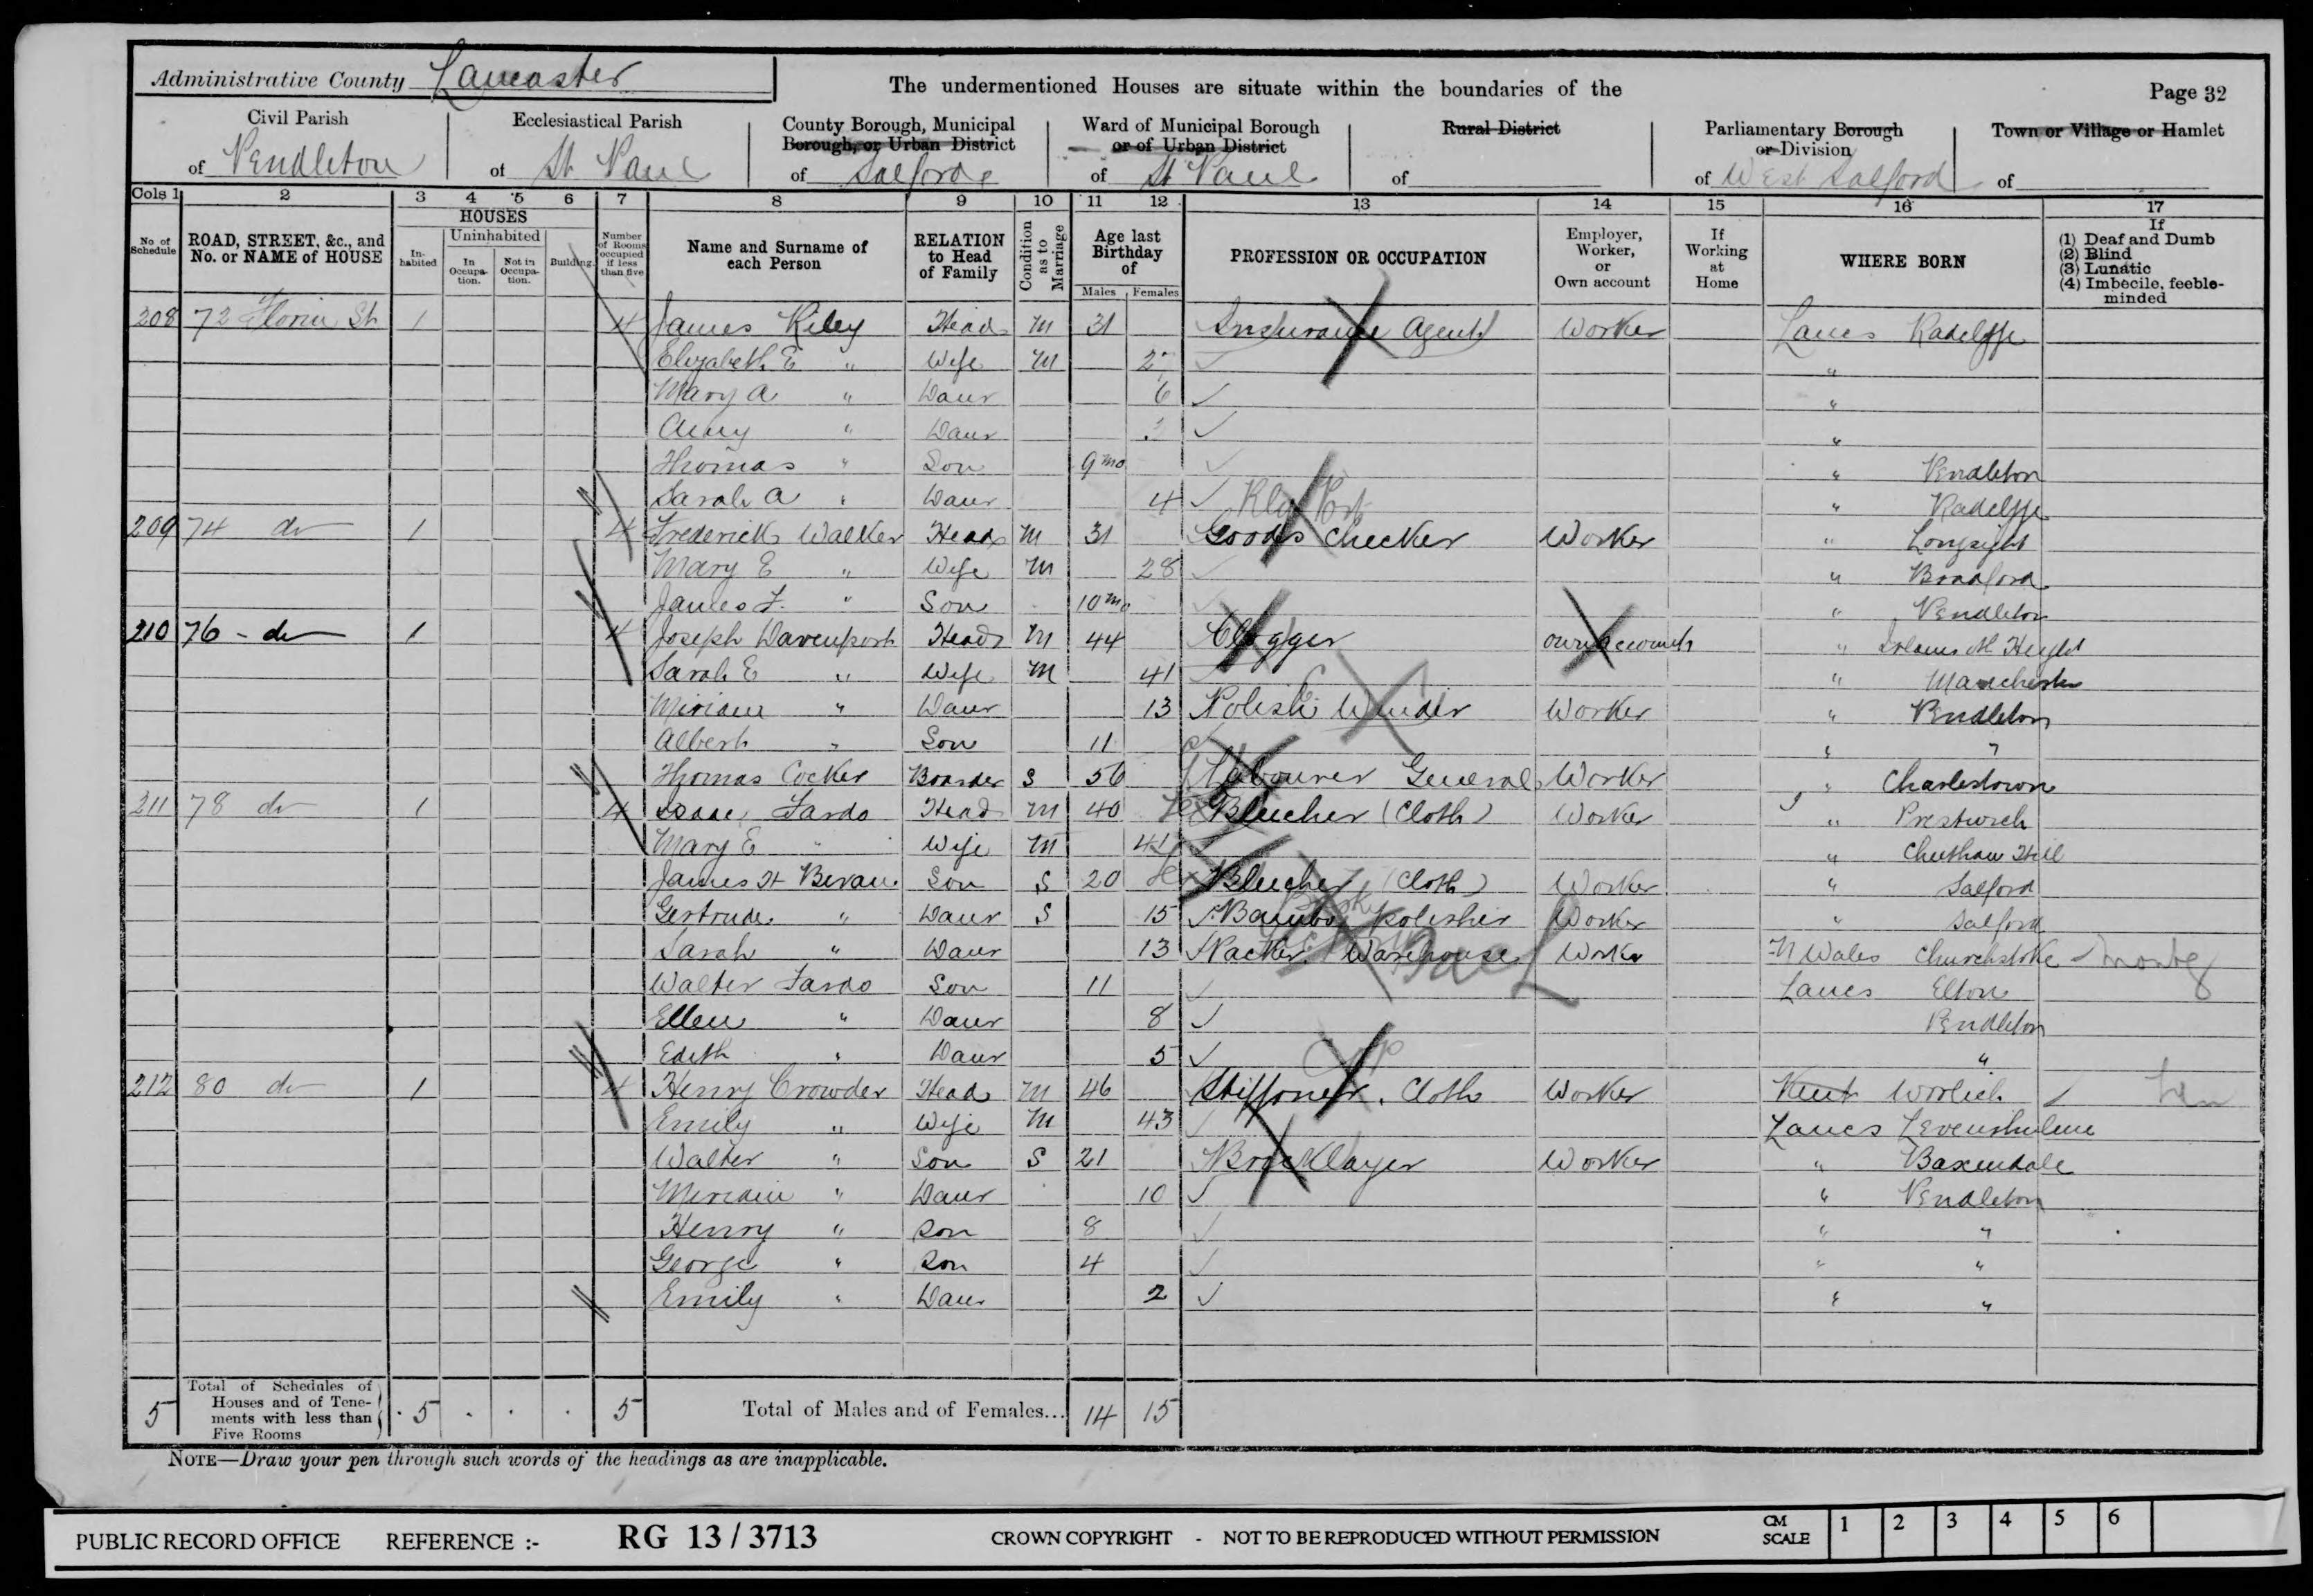 Administrative County Lancaster
The undermentioned Houses are situate within the boundaries of the
Page 32
Civil Parish of Pendleton
Ecclesiastical Parish of St Paul
County Borough, Municipal Borough, or Urban District of Salford
Ward of Municipal Borough or of Urban District of St Paul
Rural District of
Parliamentary Borough or Division of West Salford
Town or Village or Hamlet of
Cols 1 2 3 4 5 6 7 8 9 10 11 12 13 14 15 16 17
No. of Schedule
ROAD, STREET, &c., and No. or NAME of HOUSE
HOUSES
In-habited
Uninhabited
In Occupa-tion.
Not in Occupa-tion.
Building.
Number of Rooms occupied if less than five
Name and Surname of each Person
RELATION to Head of Family
Condition as to Marriage
Age last Birthday of
Males Females
PROFESSION OR OCCUPATION
Employer, Worker, or Own account
If Working at Home
WHERE BORN
If
(1) Deaf and Dumb
(2) Blind
(3) Lunatic
(4) Imbecile, feeble-minded
208 72 Florin St 1 4 James Riley Head M 31 Insurance Agent Worker Lancs Radcliffe
Elizabeth E " Wife M "
Mary A " Daur 6 "
Amy " Daur "
Thomas " Son 9mo " Pendleton
Sarah A " Daur 4 " Radcliffe
209 74 do 1 4 Frederick Walker Head M 31 Goods Checker Worker " Longsight
Mary E " Wife M 28 " Bradford
James F. " Son 10mo " Pendleton
210 76 - do 1 4 Joseph Davenport Head M 44 Clogger own account " Irlams o'th Height
Sarah E " Wife M 41 " Manchester
Miriam " Daur 13 Polish Winder Worker " Pendleton
Albert " Son 11 " "
Thomas Cocker Boarder S 56 Labourer General Worker " Charlestown
211 78 do 1 4 Isaac Fardo Head M 40 Bleacher (Cloth) Worker " Prestwich
Mary E " Wife M 41 " Cheetham Hill
James H Bevan Son S 20 Bleacher (Cloth) Worker " Salford
Gertrude " Daur S 15 Bamboo polisher Worker " Salford
Sarah " Daur 13 Packer Warehouse Worker N Wales Churchstoke
Walter Fardo Son 11 Lancs Elton
Ellen " Daur 8 Pendleton
Edith " Daur 5 "
212 80 do 1 4 Henry Crowder Head M 46 Stiffener, Cloth Worker Kent Woolich
Emily " Wife M 43 Lancs Levenshulme
Walter " Son S 21 Bricklayer Worker " Baxendale
Miriam " Daur 10 " Pendleton
Henry " Son 8 " "
George " Son 4 " "
Emily " Daur 2 " "
5 Total of Schedules of Houses and of Tene-ments with less than Five Rooms 5 . . . 5 Total of Males and of Females... 14 15
NOTE—Draw your pen through such words of the headings as are inapplicable.
PUBLIC RECORD OFFICE REFERENCE :- RG 13 / 3713 CROWN COPYRIGHT - NOT TO BE REPRODUCED WITHOUT PERMISSION CM SCALE 1 2 3 4 5 6